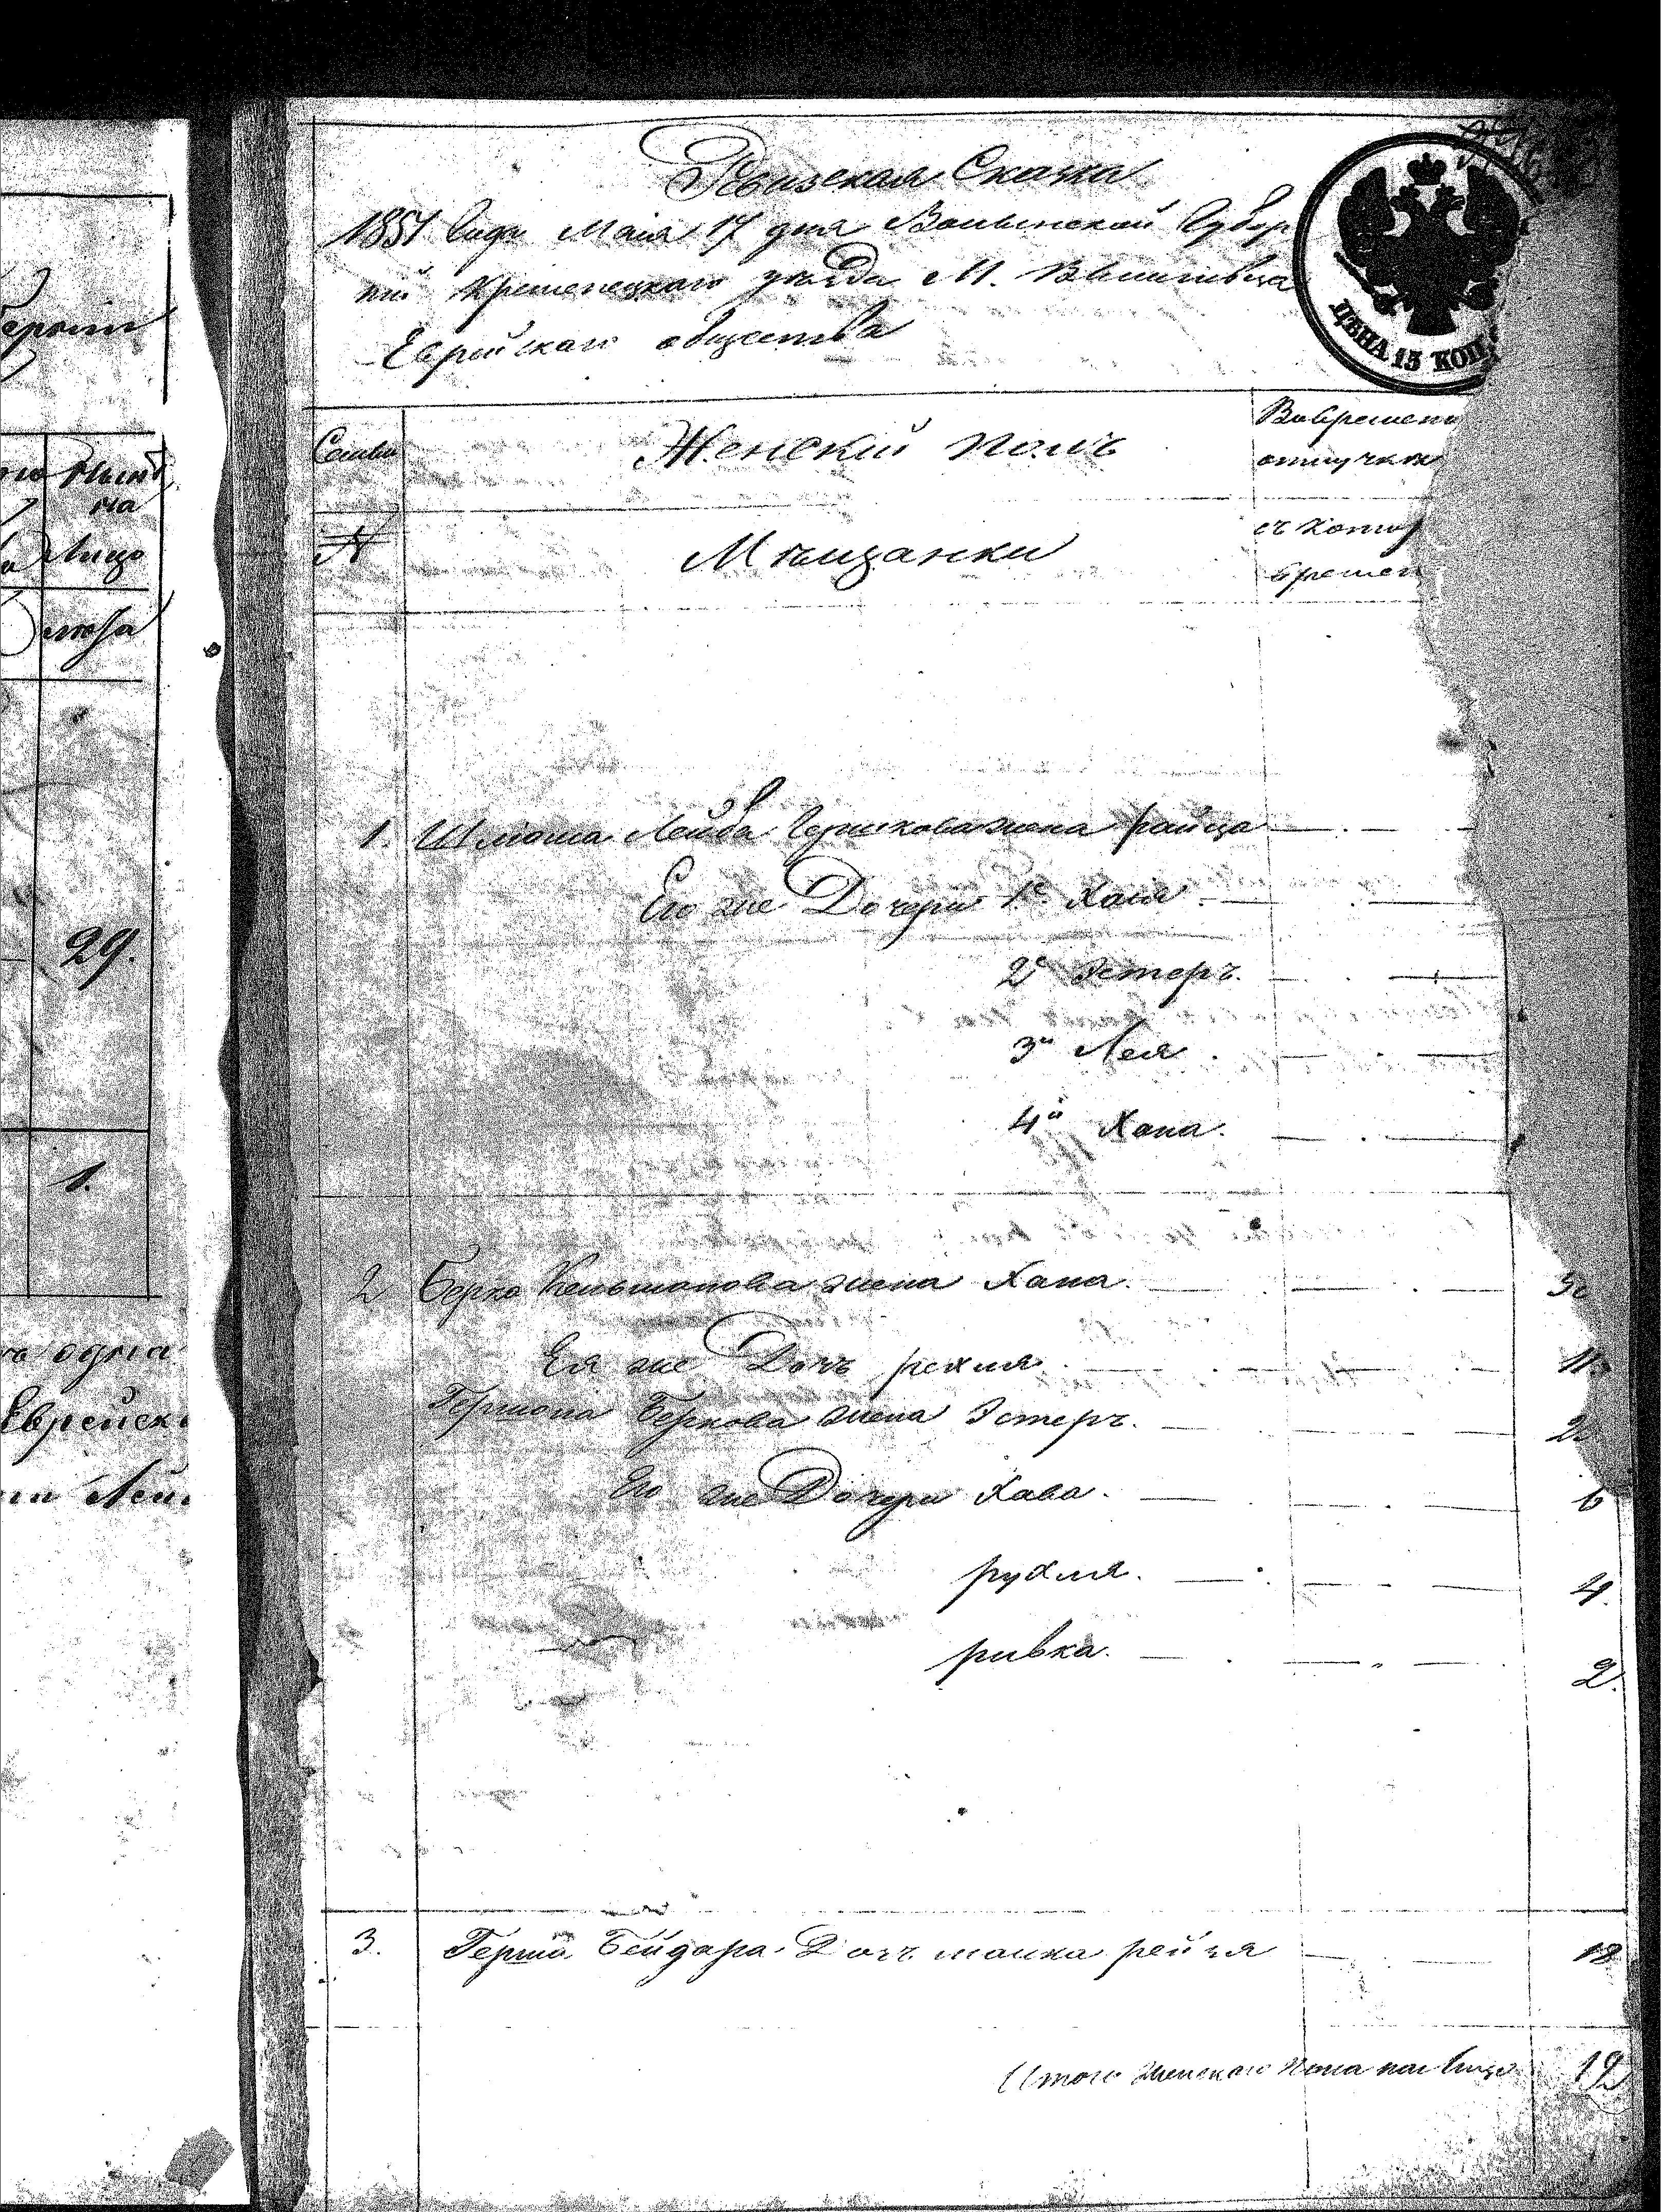 ерыт
Ныне
на
Лицо
29.
1.
одна
Еврейск
Лей
Ревизская Сказка
1851 Года Маія 17 дня Волынской Губер
ніи Кременецкаго уѣзда М. Вышгивца
Еврейскаго общества
ЦѢНА 15 КОП
Семьи
Женскій полъ
Вовремен
отлучк
№
Мѣщанки
съ котор
времен
1. Шмоша Лейба Гершкова жена райца
Его же Дочери 1е Хася
2е Эстеръ.
3я Лея
4я Хана.
2 Берко Кельманова жена Хана.
Ея же Дочь рехля 11
Гершона Беркова жена Эстеръ.
Его же Дочери Хава. 6
рухля. 4.
ривка. 2.
3. Герша Бейдера Дочь малка рейзя 18
Итого Женскаго Пола на лицо 12